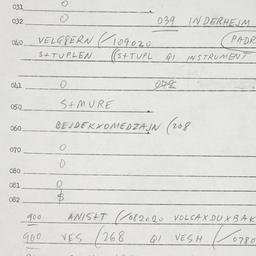 031 0
032 0 039 INDERHEJM
040 VELGPERN (/109020 (PADR
S+TUPLEN ((S+TUPL QI INSTRUMENT
041 0 078
050 S+MURE
060 BEJDEKXOMEDZAJN (208
070 0
0
080
081 0
082 $
900 ANIS+T (/082020 VOLCAXDUXBAK
900 VES (268 QI VESH (/0780